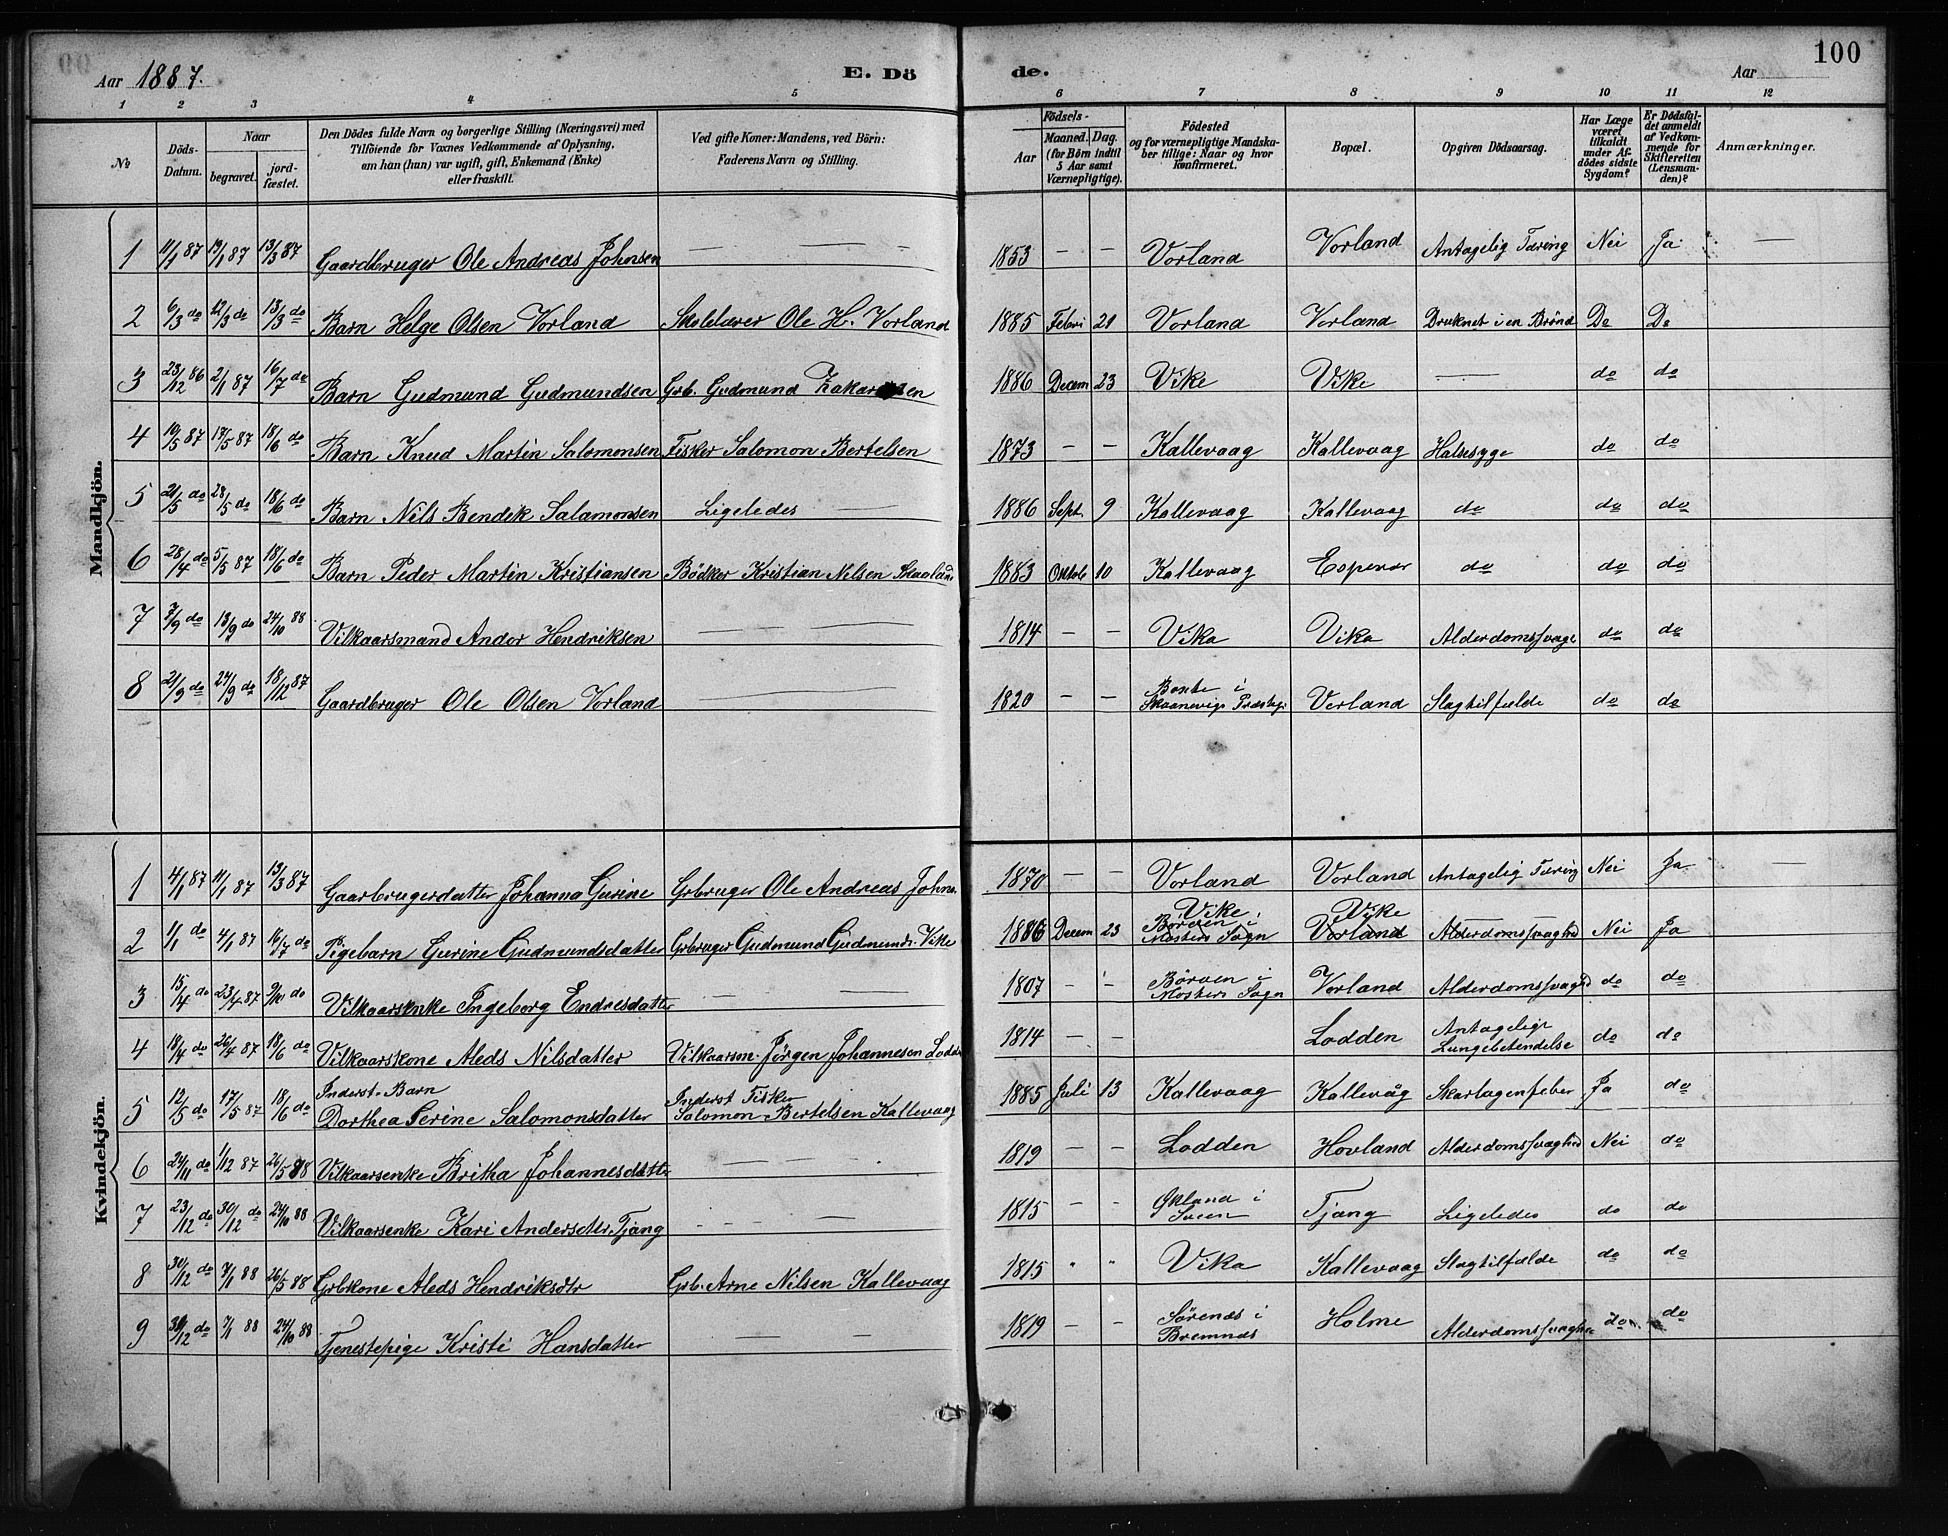 Aar 1887. E. Dö de. Aar 100
1 2 3 4 5 6 7 8 9 10 11 12
No
Döds-Datum.
Naar begravet. jordfæstet.
Den Dödes fulde Navn og borgerlige Stilling (Næringsvei) med Tilföiende for Voxnes Vedkommende af Oplysning, om han (hun) var ugift, gift, Enkemand (Enke) eller fraskilt.
Ved gifte Koner: Mandens, ved Börn: Faderens Navn og Stilling.
Födsels-
Aar Maaned. Dag. (for Börn indtil 5 Aar samt Værnepligtige).
Födested og for værnepligtige Mandskaber tillige: Naar og hvor konfirmeret.
Bopæl.
Opgiven Dödsaarsag.
Har Læge været tilkaldt under Afdödes sidste Sygdom?
Er Dödsfaldet anmeldt af Vedkommende for Skifteretten (Lensmanden)?
Anmærkninger.
Mandkjön.
1 11/1 87 19/1 87 13/3 87 Gaardbruger Ole Andreas Johnsen — — - 1853 - - Vorland Vorland Antagelig Tæring Nei Ja —
2 6/3 do 12/3 do 13/3 do Barn Helge Olsen Vorland Skolelærer Ole H. Vorland 1885 Febri 21 Vorland Vorland Druknet i en Brønd Do Do
3 23/12 86 2/1 87 16/7 do Barn Gudmund Gudmundsen Grb. Gudmund 1886 Decem 23 Vike Vike — do do
4 10/5 87 17/5 87 18/6 do Barn Knud Martin Salomonsen Fisker Salomon Bertelsen 1873 - - Kallevaag Kallevaag Halssyge do do
5 21/5 do 28/5 do 18/6 do Barn Nils Bendik Salamonsen Ligeledes — 1886 Sept. 9 Kallevaag Kallevaag do do do
6 28/4 do 5/5 87 18/6 do Barn Peder Martin Kristiansen Bødker Kristian Nilsen 1883 Oktob 10 Kallevaag Espevær do do do
7 7/9 do 13/9 do 24/10 88 Vilkaarsmand Andor Hendriksen — — — 1814 - - Vika Vika Alderdomssvage do do
8 21/9 do 24/9 do 18/12 87 Gaardbruger Ole Olsen Vorland — 1820 - - i Skaanevigs Præstegj Vorland Slagtilfælde do do
Kvindekjön.
1 4/1 87 11/1 87 13/3 87 Gaarbrugerdatter Johanna Gurine Grbruger Ole Andreas Johns. 1870 - - Vorland Vorland Antagelig Tæring Nei Ja —
2 1/1 do 4/1 87 16/7 do Pigebarn Gurine Gudmundsdatter Grbruger Gudmund Gudmunds. Vike 1886 Decem 23 Vike Børøen i Mosters Sogn Vike Vorland Alderdomssvaghed Nei Ja
3 15/4 do 23/4 87 9/10 do Vilkaarsenke Ingeborg Endresdatter — — 1807 - - Børøen i Mosters Sogn Vorland Alderdomssvaghed do do
4 18/4 do 26/4 87 18/6 do Vilkaarskone Aleds Nilsdatter Vilkaarsm. Jørgen Johannesen Lodde 1814 - - Lodden Antagelige Lungebetendelse do do
5 12/5 do 17/5 87 18/6 do Inderst-Barn Dorthea Serine Salomonsdatter Inderst Fisker Salomon Bertelsen Kallevaag 1885 Juli 13 Kallevaag Kallevåg Skarlagenfeber Ja do
6 24/11 do 1/12 87 26/5 88 Vilkaarsenke Britha Johannesdatter — — — 1819 - - Lodden Hovland Alderdomssvaghed Nei do
7 23/12 do 30/12 do 24/10 88 Vilkaarsenke Kari Andersdtr. Tjang - - — 1815 - - Økland i Sveen Tjang Ligeledes do do
8 30/12 do 7/1 88 26/5 88 Grbkone Aleds Hendriksdtr Grb. Arne Nilsen Kallevaag 1815 " " Vika Kallevaag Slagtilfælde do do
9 30/12 do 7/1 88 24/10 88 Tjenestepige Kristi Hansdatter — — 1819 - - Sørenæs i Bremnæs Holme Alderdomssvaghe do do